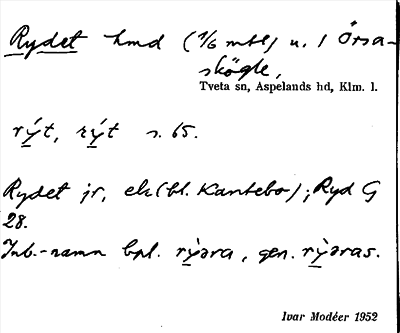 Rydet hmd (1/6 mtl) u. l Örsa-
skögle,
Tveta sn, Aspelands hd, Klm. l.
rýt, rýt s. 65.
Rydet jr, ek (bl. Kantebo); Ryd G
28.
Inb.-namn bpl. rỳəra, gen. rỳəras.
Ivar Modéer 1952